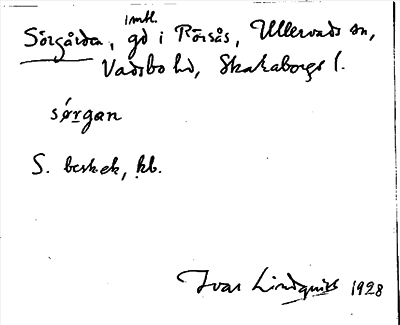 Sörgården, intl. gd i Rörsås, Ullervads sn,
Vadsbo hd, Skaraborgs l.
sǿrgan
S. beskek, kb.
Ivar Lindquist 1928